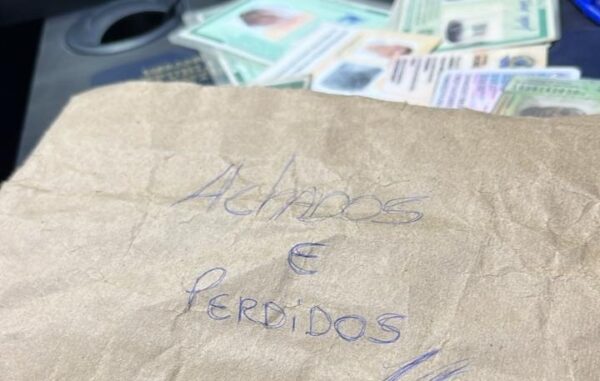 AChADOS
E
PERDiDOS